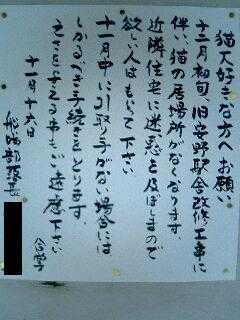 猫大好きな方へお願い
十二月初旬、旧安野駅舎改修工事に
伴い、猫の居場所がなくなります。
近隣住宅に迷惑を及ぼしますので
欲しい人はもらいて下さい
十一月中に引取り手がない場合には
しかるべき手続きをとります。
えさを与える事もご遠慮下さい
十一月十六日